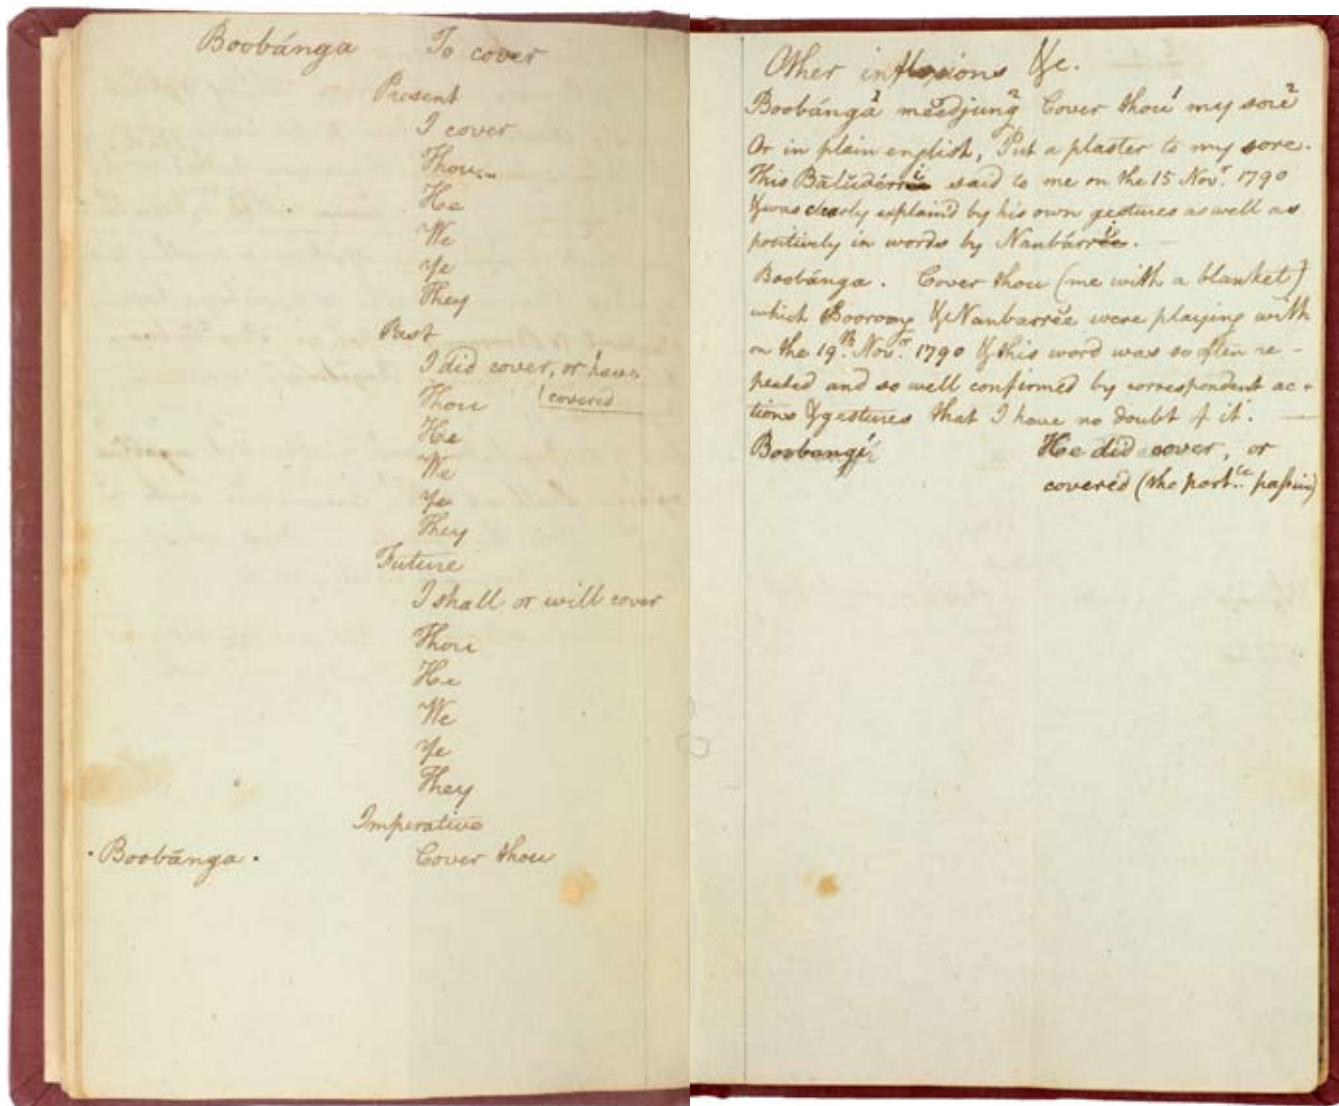 Boobánga To cover
Present
I cover
Thou
He
We
Ye
They
Past
I did cover, or have
covered
Thou
He
We
Ye
They
Future
I shall or will cover
Thou
He
We
Ye
They
Imperative
Boobánga. Cover thou
Other inflexions &c.
Boobánga¹ meedjung² Cover thou¹ my sore²
Or in plain english, Put a plaster to my sore.
This Balüdérri said to me on the 15 Novr. 1790
& was clearly explain'd by his own gestures as well as
positively in words by Nanbárri.
Boobánga. Cover thou (me with a blanket)
which Boorong & Nanbarrĕe were playing with
on the 19th. Novr. 1790 & this word was so often re-
peated and so well confirmed by correspondent ac-
tions & gestures that I have no doubt of it.
Boobangí He did cover, or
covered (the partce. passive)